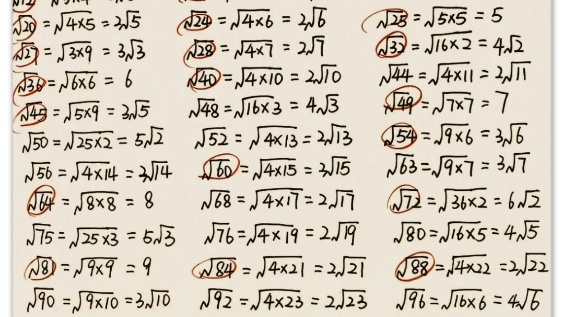 √20 = √4×5 = 2√5   √24 = √4×6 = 2√6   √25 = √5×5 = 5
√27 = √3×9 = 3√3   √28 = √4×7 = 2√7   √32 = √16×2 = 4√2
√36 = √6×6 = 6   √40 = √4×10 = 2√10   √44 = √4×11 = 2√11
√45 = √5×9 = 3√5   √48 = √16×3 = 4√3   √49 = √7×7 = 7
√50 = √25×2 = 5√2   √52 = √4×13 = 2√13   √54 = √9×6 = 3√6
√56 = √4×14 = 2√14   √60 = √4×15 = 2√15   √63 = √9×7 = 3√7
√64 = √8×8 = 8   √68 = √4×17 = 2√17   √72 = √36×2 = 6√2
√75 = √25×3 = 5√3   √76 = √4×19 = 2√19   √80 = √16×5 = 4√5
√81 = √9×9 = 9   √84 = √4×21 = 2√21   √88 = √4×22 = 2√22
√90 = √9×10 = 3√10   √92 = √4×23 = 2√23   √96 = √16×6 = 4√6